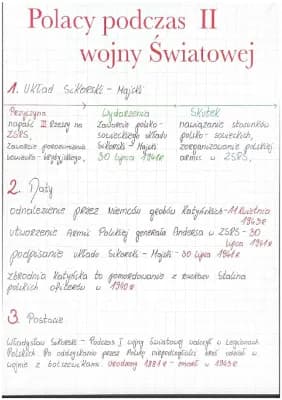 Polacy podczas II
wojny Światowej
1. Układ Sikorski - Majski
Przyczyna
napaść III Rzeszy na
ZSRS,
Zawarcie porozumienia
sowiecko - brytyjskiego,
Wydarzenia
Zawarcie polsko -
sowieckiego układu
Sikorski - Majski
30 lipca 1941r
Skutek
nawiązanie stosunków
polsko - sowieckich,
zorganizowanie polskiej
armii w ZSRS,
2. Daty
odnalezienie przez Niemców grobów Katyńskich - 11 kwietnia
1943r
utworzenie Armii Polskiej generała Andersa w ZSRS - 30
lipca 1941r
podpisanie układu Sikorski - Majski - 30 lipca 1941r
zbrodnia Katyńska to pomordowanie z Stalina
polskich oficerów w 1940r
3. Postacie
Władysław Sikorski - Podczas I wojny światowej walczył w Legionach
Polskich. Po odzyskaniu przez Polskę niepodległości brał udział w
wojnie z bolszewikami. Urodzony 1881r - zmarł w 1943r